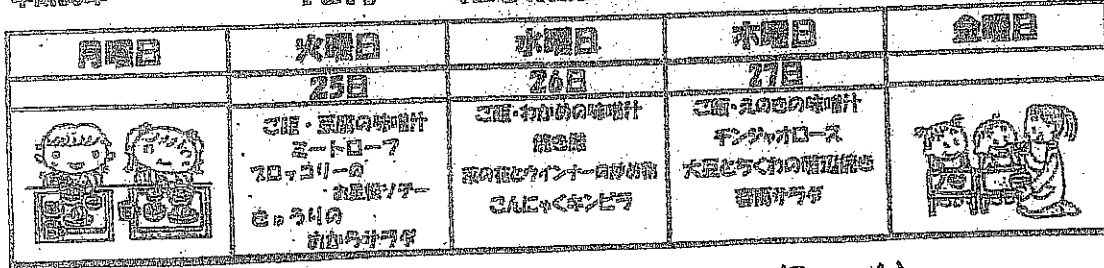 月曜日
火曜日
水曜日
木曜日
金曜日
25日
26日
27日
ご飯・豆腐の味噌汁
ミートローフ
ブロッコリーの
ソテー
きゅうりの
おからサラダ
ご飯・わかめの味噌汁
とウインナーの
こんにゃくキンピラ
ご飯・えのきの味噌汁
チンジャオロース
大豆とちくわの
春雨サラダ